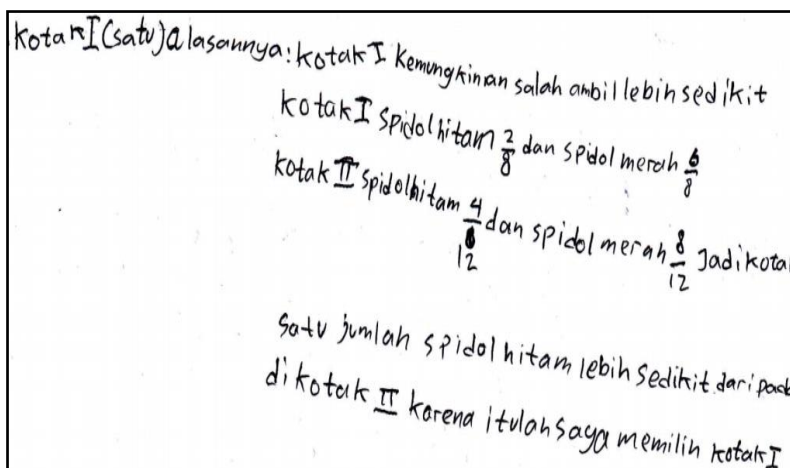 kotak I (satu) alasannya: kotak I kemungkinan salah ambil lebih sedikit
kotak I spidol hitam 2/8 dan spidol merah 6/8
kotak II spidol hitam 4/12 dan spidol merah 8/12 Jadi kota
satu jumlah spidol hitam lebih sedikit dari pad
di kotak II karena itulah saya memilih kotak I